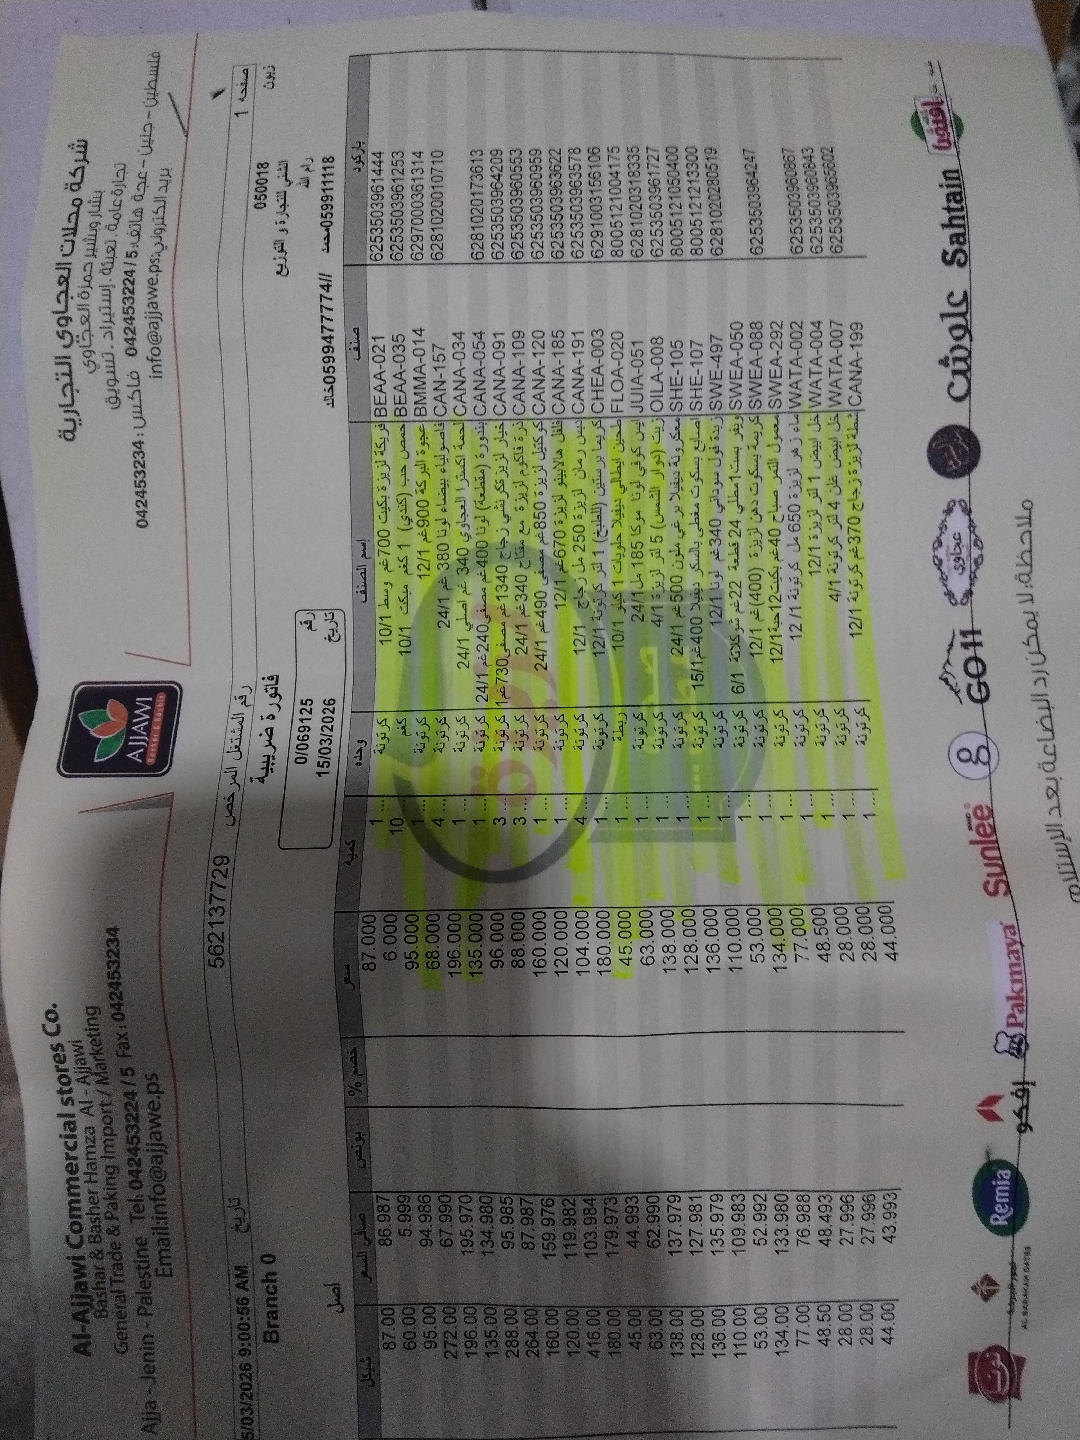 Al-Ajjawi Commercial stores Co.
Bashar & Basher Hamza Al - Ajjawi
General Trade & Paking Import / Marketing
Ajja - Jenin - Palestine Tel:042453224 / 5 Fax : 042453234
Email:info@ajjawe.ps
AJJAWI
شركة محلات العجاوي التجارية
بشار وبشير حمزة العجاوي
تجارة عامة، تعبئة، إستيراد، تسويق
فلسطين - جنين - عجة هاتف: 042453224/5 فاكس: 042453234
بريد الكتروني: info@ajjawe.ps
5/03/2026 9:00:56 AM تاريخ 562137729 رقم المشتغل المرخص صفحة 1
Branch 0
فاتورة ضريبية
050018 زبون
أصل
0/069125 رقم
15/03/2026 تاريخ
للتجارة و التوزيع
رام الله
باركود صنف إسم الصنف وحده كمية سعر خصم % بونص صافي السعر شيكل
6253503961444 BEAA-021 فريكة لزيزة بكيت 700غم وسط 10/1 كرتونة 1 ... 87.000 86.987 87.00
6253503961253 BEAA-035 كغم 10 6.000 5.999 60.00
6297000361314 BMMA-014 عجوة البركة 900غم 12/1 كرتونة 1 ... 95.000 94.986 95.00
6281020010710 CAN-157 فاصولياء بيضاء لونا 380 غم 24/1 كرتونة 4 ... 68.000 67.990 272.00
CANA-034 لحمة اكسترا العجاوي 340 غم اصلي 24/1 كرتونة 1 ... 196.000 195.970 196.00
6281020173613 CANA-054 بندورة (مقطعة) لونا 400غم مصفى240غم 24/1 كرتونة 1 ... 135.000 134.980 135.00
6253503964209 CANA-091 كرتونة 3 ... 96.000 95.985 288.00
6253503960553 CANA-109 ذرة فاكوم لزيزة مع مفتاح 340غم 24/1 كرتونة 3 ... 88.000 87.987 264.00
6253503960959 CANA-120 كوكتيل لزيزة 850غم صفي 490غم 24/1 كرتونة 1 ... 160.000 159.976 160.00
6253503963622 CANA-185 فلفل هالابينو لزيزة 670غم 12/1 كرتونة 1 ... 120.000 119.982 120.00
6253503963578 CANA-191 دبس رمان لزيزة 250 مل زجاج 12/1 كرتونة 4 ... 104.000 103.984 416.00
6291003156106 CHEA-003 1 لتر كرتونة 12/1 كرتونة 1 ... 180.000 179.973 180.00
8005121004175 FLOA-020 طحين ايطالي ديفيلا حلويات 1 كيلو 10/1 ربطة 1 ... 45.000 44.993 45.00
6281020318335 JUIA-051 ايس كوفي لونا موكا 185 مل 24/1 كرتونة 1 ... 63.000 62.990 63.00
6253503961727 OILA-008 زيت (دوار الشمس) 5 لتر لزيزة 4/1 كرتونة 1 ... 138.000 137.979 138.00
8005121050400 SHE-105 500غم 24/1 كرتونة 1 ... 128.000 127.981 128.00
8005121213300 SHE-107 ديفيلا 400غم 15/1 كرتونة 1 ... 136.000 135.979 136.00
6281020280519 SWE-497 زبدة فول سوداني 340غم لونا 12/1 كرتونة 1 ... 110.000 109.983 110.00
SWEA-050 24 قطعة 22غم شوكلاتة 6/1 كرتونة 1 ... 53.000 52.992 53.00
6253503964247 SWEA-088 لزيزة (400)غم 12/1 كرتونة 1 ... 134.000 133.980 134.00
SWEA-292 معمول التمر صباح 40غم بكيت12حبة12/1 كرتونة 1 ... 77.000 76.988 77.00
6253503960867 WATA-002 ماء زهر لزيزة 650 مل كرتونة 12/1 كرتونة 1 ... 48.500 48.493 48.50
6253503960843 WATA-004 خل ابيض 1 لتر لزيزة 12/1 كرتونة 1 ... 28.000 27.996 28.00
6253503965602 WATA-007 4 لتر كرتونة 4/1 كرتونة 1 ... 28.000 27.996 28.00
CANA-199 شطة لزيزة زجاج 370غم كرتونة 12/1 كرتونة 1 ... 44.000 43.993 44.00
Remia
إفكو
Pakmaya
Sunlee
GO!!
عجاوي
علوش
Sahtain
AL BARAKAH DATES
ملاحظة: لا يمكن رد البضاعة بعد الإستلام